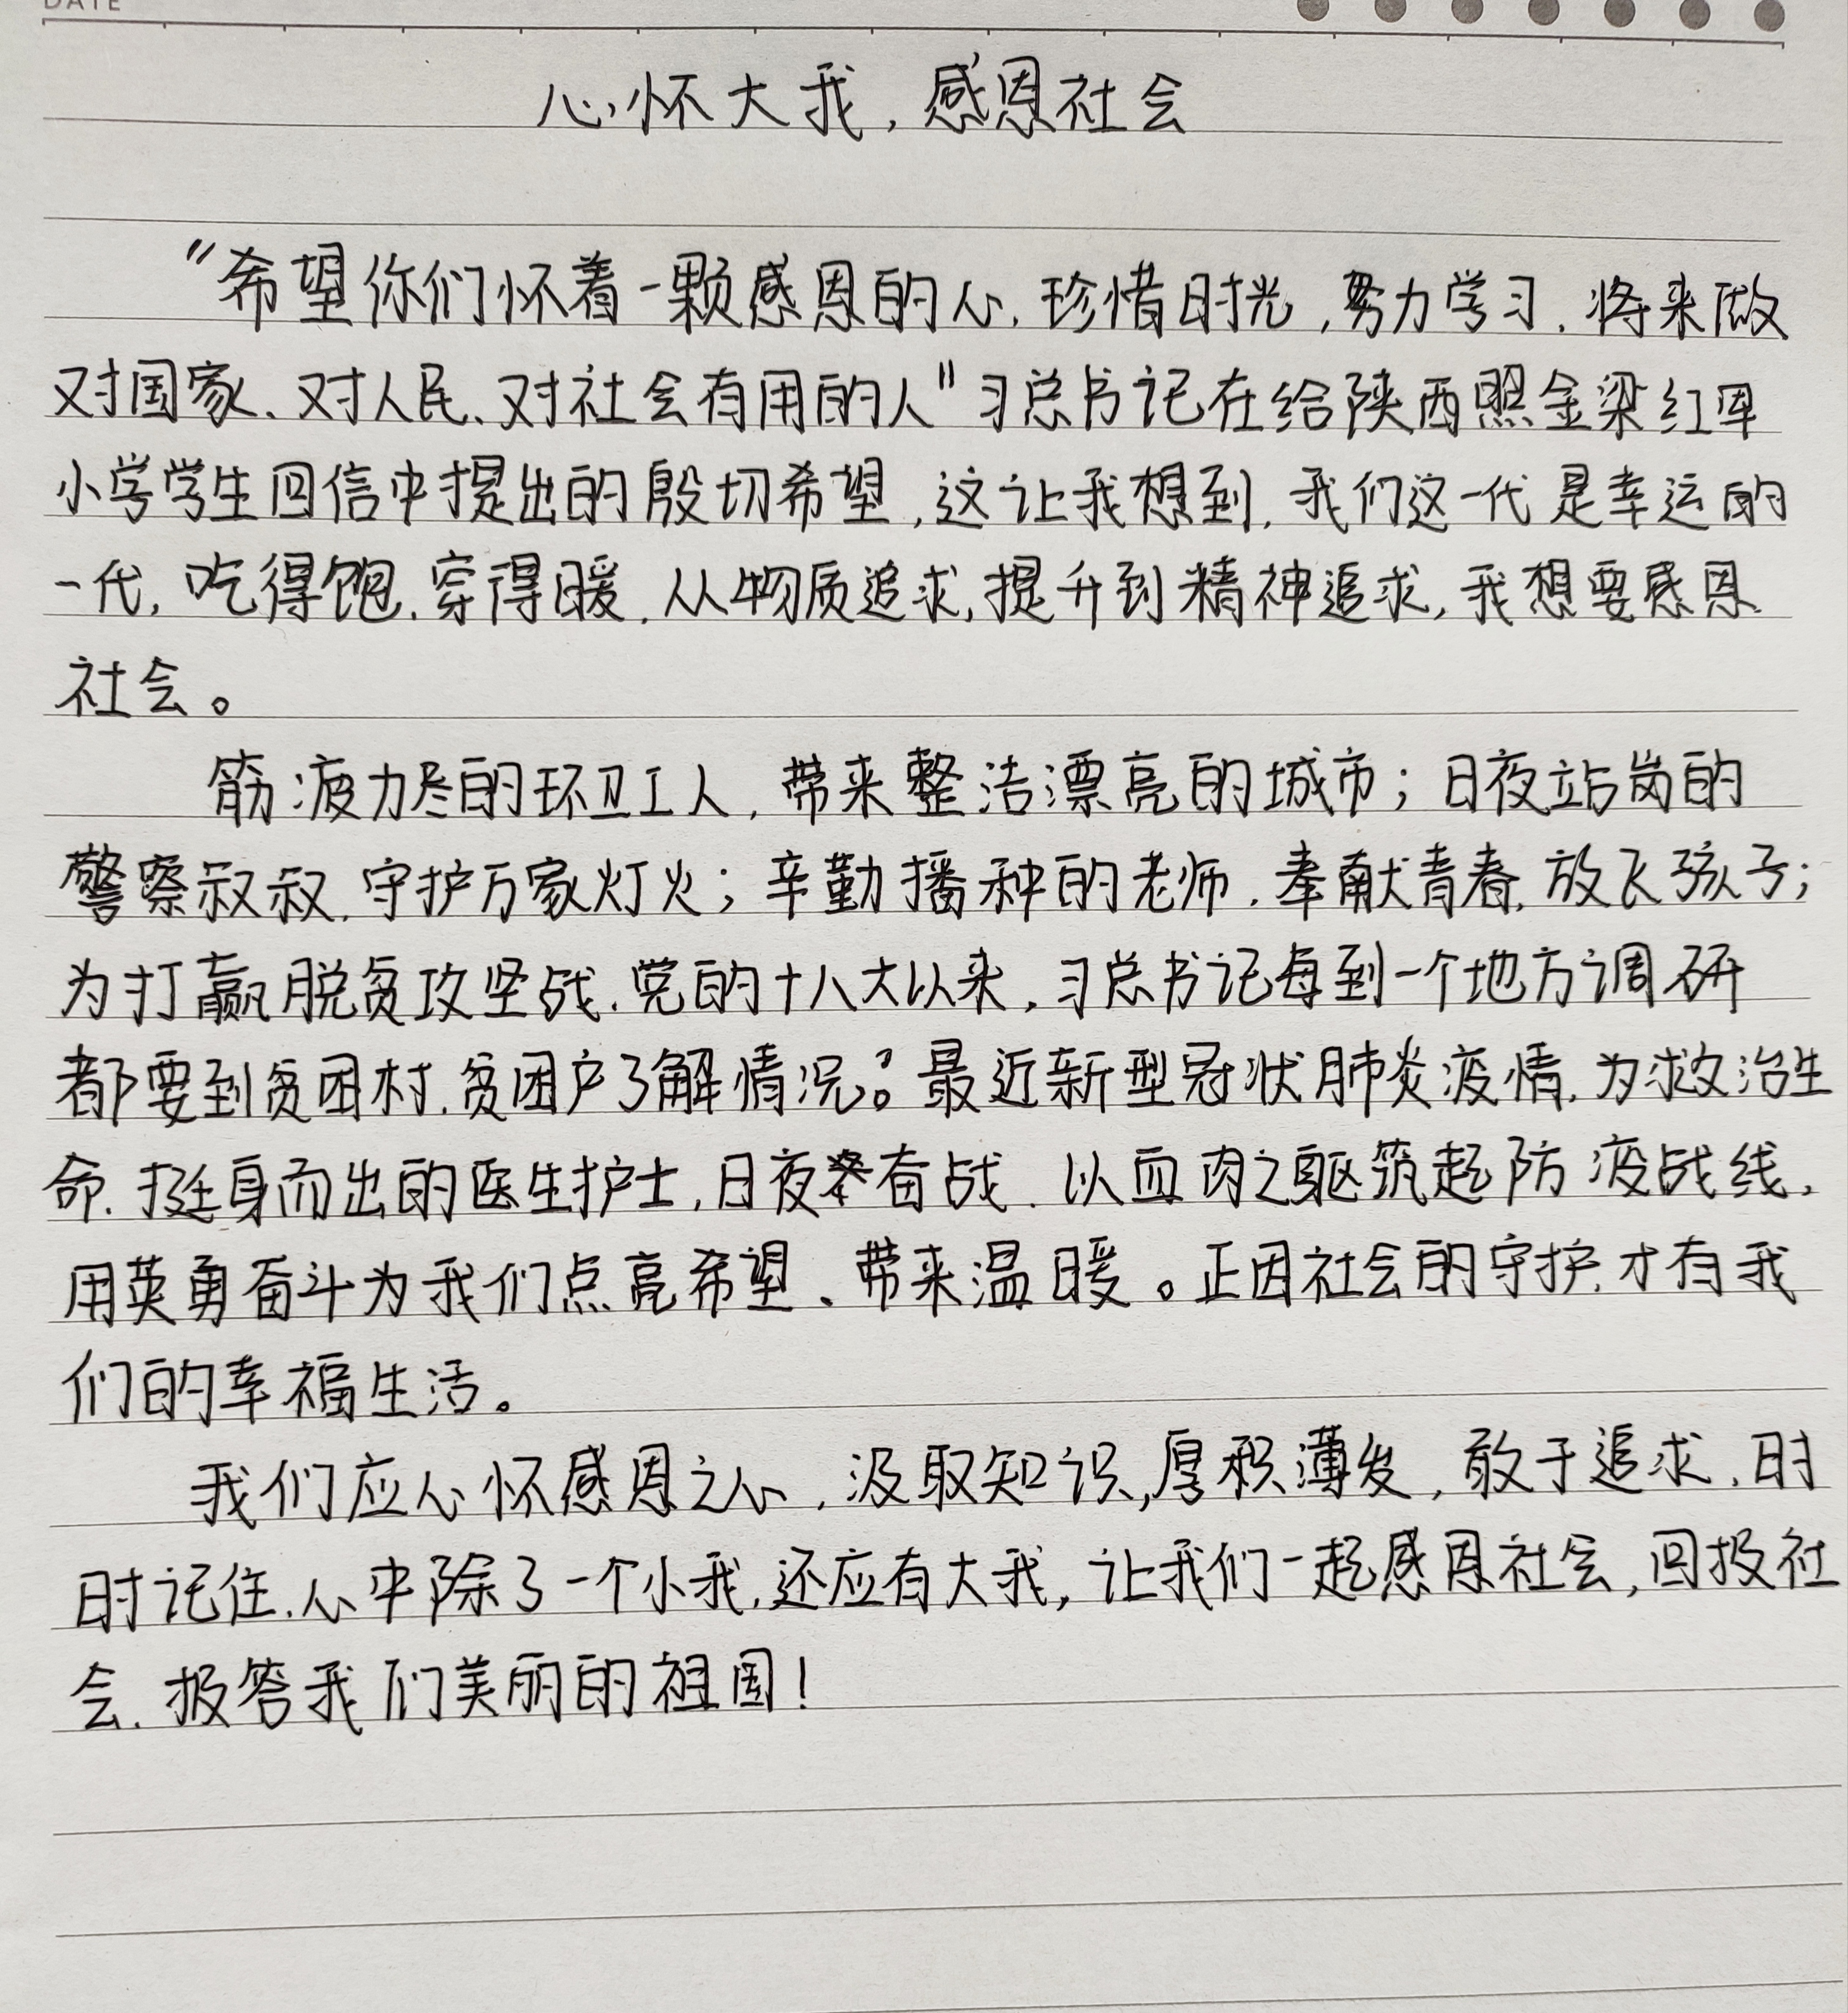 DATE
心怀大我，感恩社会
"希望你们怀着一颗感恩的心，珍惜时光，努力学习，将来做
对国家、对人民、对社会有用的人"习总书记在给陕西照金梁红军
小学学生回信中提出的殷切希望，这让我想到，我们这一代是幸运的
一代，吃得饱，穿得暖，从物质追求，提升到精神追求，我想要感恩
社会。
筋疲力尽的环卫工人，带来整洁漂亮的城市；日夜站岗的
警察叔叔，守护万家灯火；辛勤播种的老师，奉献青春，放飞孩子；
为打赢脱贫攻坚战，党的十八大以来，习总书记每到一个地方调研
都要到贫困村，贫困户了解情况。最近新型冠状肺炎疫情，为救治生
命，挺身而出的医生护士，日夜奋战，以血肉之躯筑起防疫战线，
用英勇奋斗为我们点亮希望、带来温暖。正因社会的守护，才有我
们的幸福生活。
我们应心怀感恩之心，汲取知识，厚积薄发，敢于追求，时
时记住，心中除了一个小我，还应有大我，让我们一起感恩社会，回报社
会，报答我们美丽的祖国！